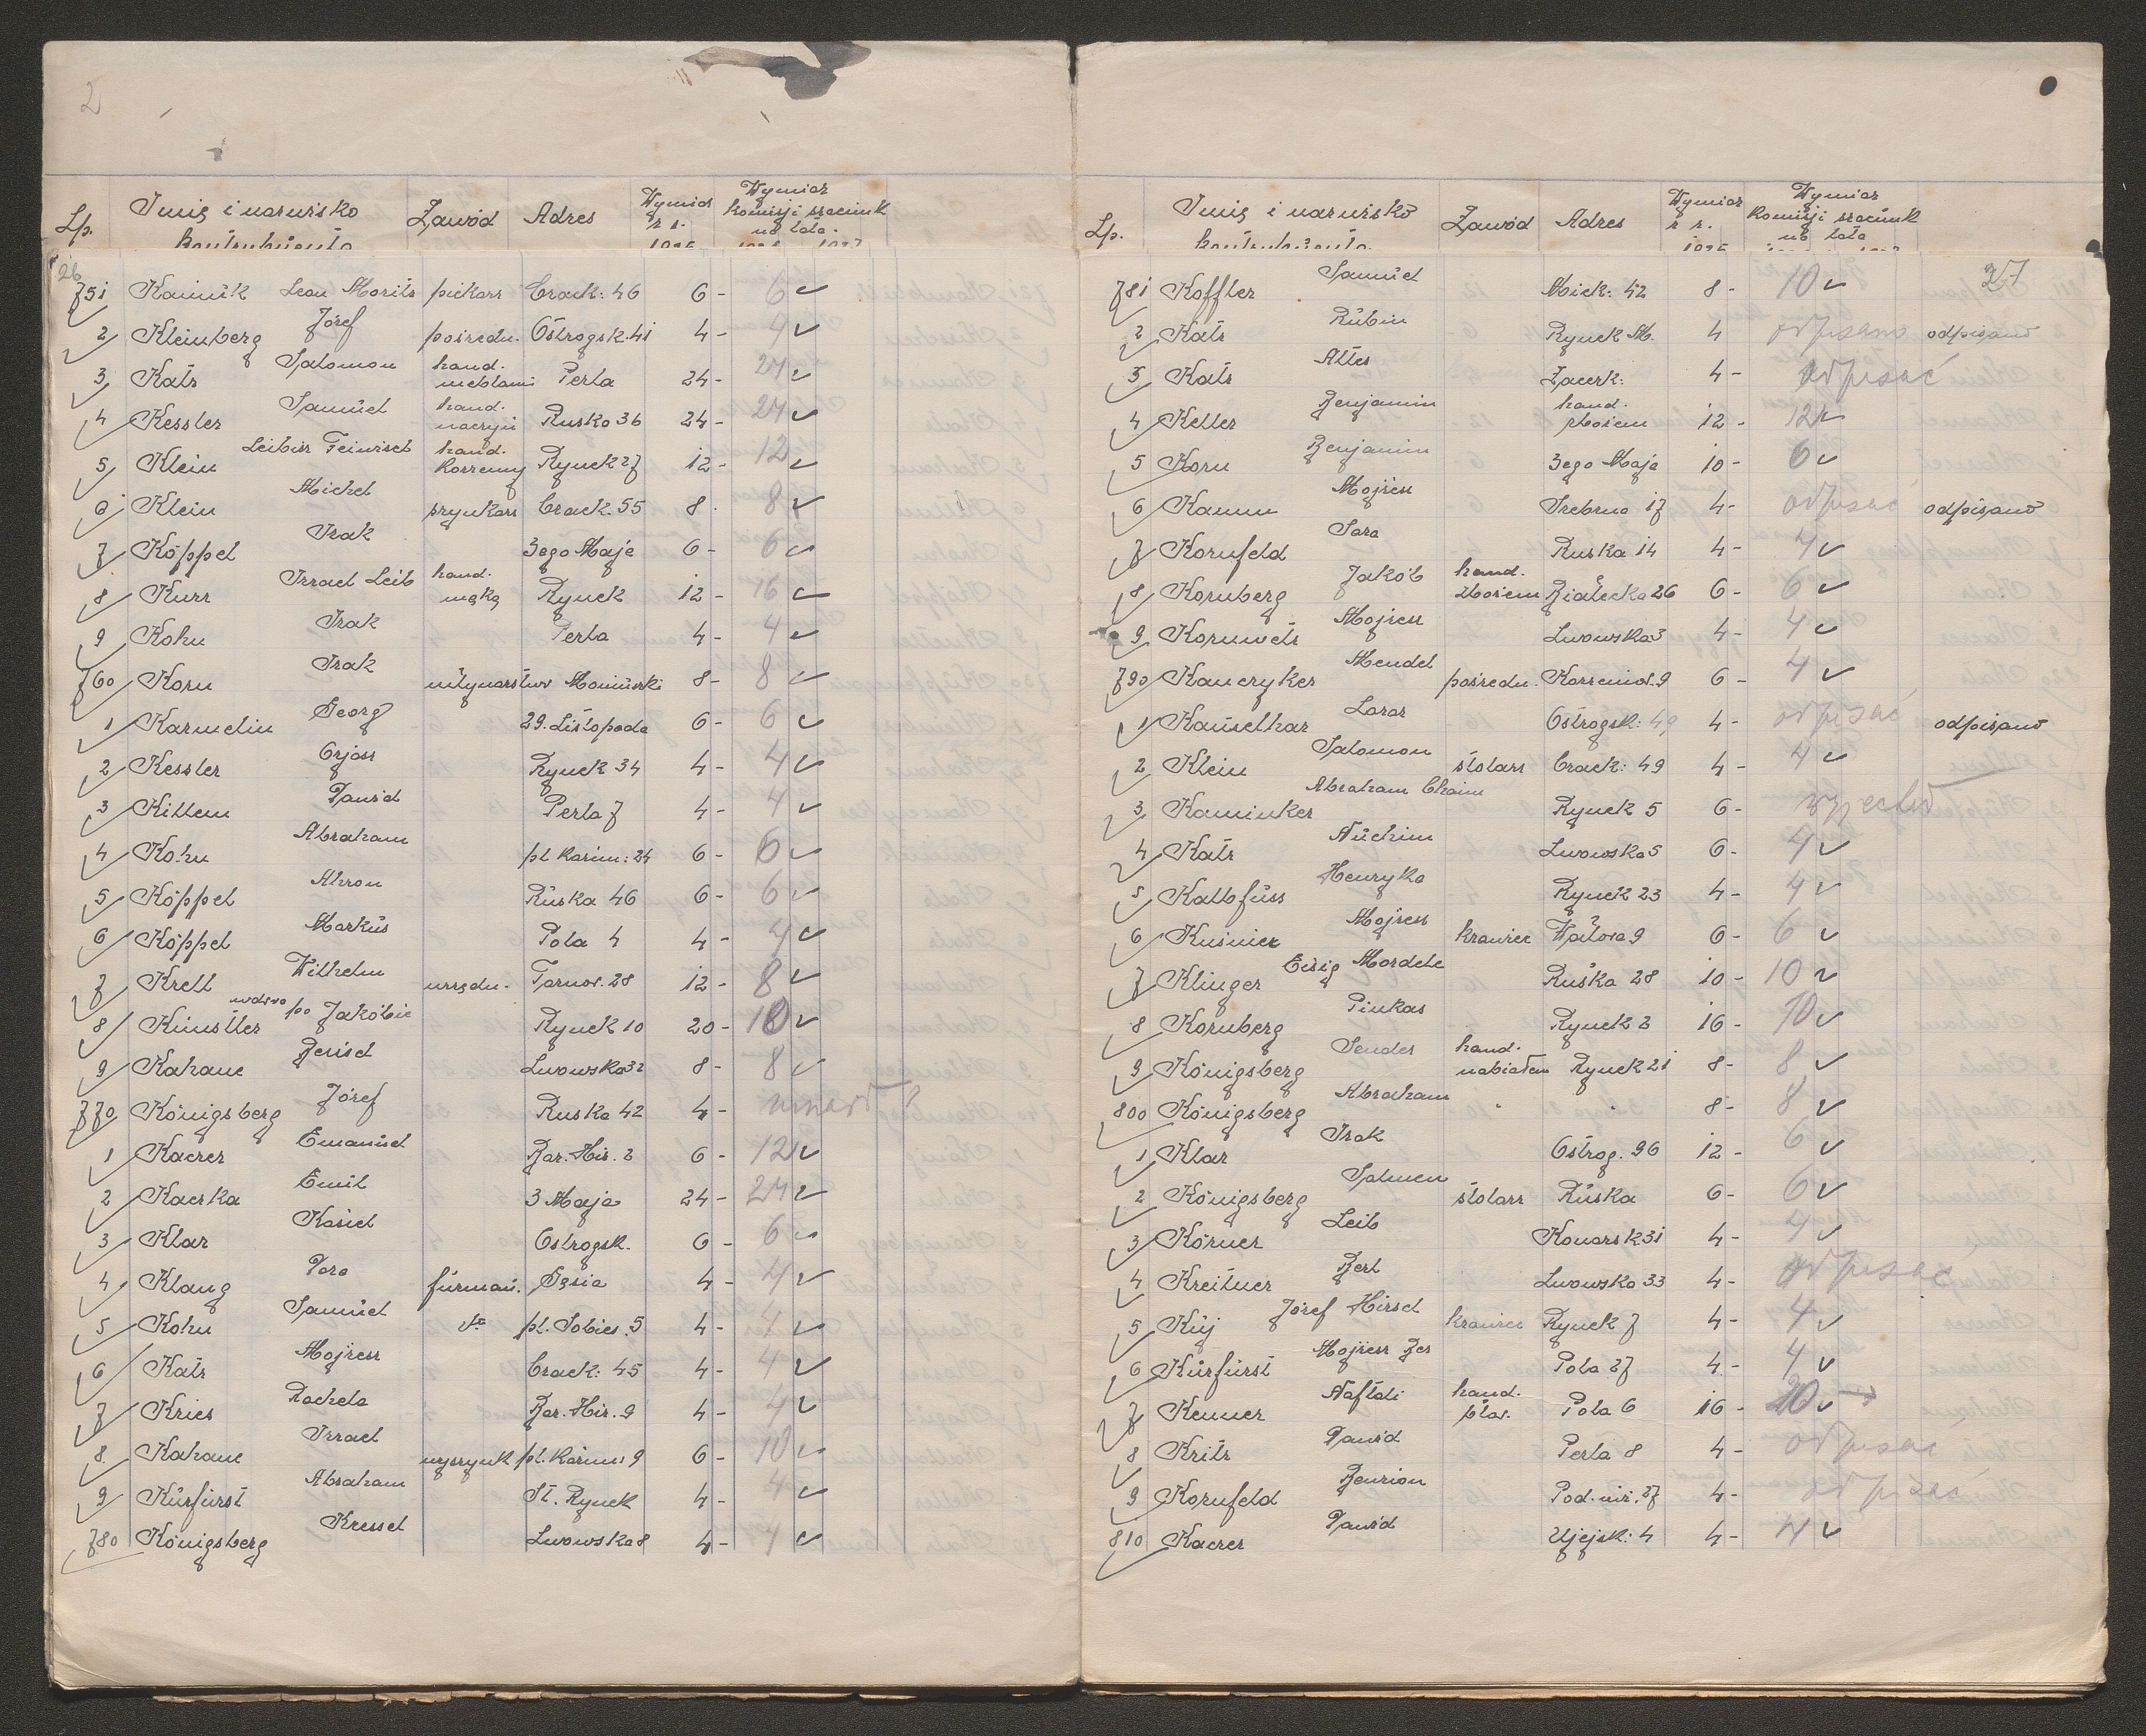 2
Lp. Imię i nazwisko Zawód Adres Wymiar Wymiar
komisji szacunk
na lata
26
751 Kamuk Leon Moritz piekarz Czack: 46 6 - 6
2 Kleinberg Józef pośredn. Ostrogsk. 41 4 - 4
3 Katz Salomon hand. meblami Perla 24 - 24
4 Kessler Samuel hand. naczyń Ruska 36 24 - 24
5 Klein Leibisz Feiwisch hand. korzenny Rynek 27 12 - 12
6 Klein Michel szynkarz Czack. 55 8 - 8
7 Köppel Izak 3ego Maja 6 - 6
8 Kurz Izrael Leib hand. mąką Rynek 12 - 16
9 Kohn Izak Perla 4 - 4
760 Korn Izak młynarstwo Moniuszki 8 - 8
1 Karmelin Georg 29. Listopada 6 - 6
2 Kessler Ozjasz Rynek 34 4 - 4
3 Kittem Dawid Perla 7 4 - 4
4 Kohn Abraham pl. Kazim: 24 6 - 6
5 Köppel Ahron Ruska 46 6 - 6
6 Köppel Markus Pola 4 4 - 4
7 Krell Wilhelm urzędn. Tarnow. 28 12 - 8
8 Künstler wdowa po Jakóbie Rynek 10 20 - 10
9 Kahane Berisch Lwowska 32 8 - 8
770 Königsberg Józef Ruska 42 4 - umarł ?
1 Kaczer Emanuel Bar. Hir. 2 6 - 12
2 Kaczka Emil 3 Maja 24 - 24
3 Klar Kasiel Ostrogsk. 6 - 6
4 Klang Dora furmań. Gęsia 4 - 4
5 Kohn Samuel pl. Sobies. 5 4 - 4
6 Katz Mojżesz Czack: 45 4 - 4
7 Kries Rachela Bar. Hir. 9 4 - 4
8 Kahane Izrael wyszynk pl. Kazim 9 6 - 10
9 Kürfürst Abraham St. Rynek 4 - 4
780 Königsberg Kressel Lwowska 8 4 - 4
Lp. Imię i nazwisko Zawód Adres Wymiar Wymiar
komisji szacunk
na lata
27
781 Koffler Samuel Mick: 42 8 - 10
2 Katz Rubin Rynek M. 4 odpisano odpisano
3 Katz Alter Zacerk: 4 - odpisać
4 Keller Benjamin hand. zbożem 12 - 12
5 Korn Benjamin 3ego Maja 10 - 6
6 Kamm Mojżesz Srebrna 17 4 - odpisać odpisano
7 Kornfeld Sara Ruska 14 4 - 4
8 Kornberg Jakób hand. zbożem Białecka 26 6 - 6
9 Kornweitz Mojżesz Lwowska 3 4 - 4
790 Kanczyker Mendel pośredn. Korzeniow. 9 6 - 4
1 Kanselhar Lazar Ostrogsk: 49 4 - odpisać odpisano
2 Klein Salomon stolarz Czack: 49 4 - 4
3 Kaminker Abraham Chaim Rynek 5 6 - wyjechał
4 Katz Nuchim Lwowska 5 6 - 4
5 Kalbfuss Henryka Rynek 23 4 - 4
6 Kusnier Mojżesz krawiec Wałowa 9 6 - 6
7 Klinger Eisig Mordche Ruska 28 10 - 10
8 Kornberg Pinkas Rynek 2 16 - 10
9 Königsberg Sender hand. nabiałem Rynek 21 8 - 8
800 Königsberg Abraham " " 8 - 8
1 Klar Izak Ostrog. 96 12 - 6
2 Königsberg Salmen stolarz Ruska 6 - 6
3 Körner Leib Konarsk 31 4 - 4
4 Kreitner Berl Lwowska 33 4 - odpisać
5 Kuj Józef Hirsch krawiec Rynek 7 4 - 4
6 Kürfürst Mojżesz Ber Pola 27 4 - 4
7 Kenner Naftali hand. bław. Pola 6 16 - 20
8 Kritz Dawid Perla 8 4 - odpisać
9 Kornfeld Benzion Pod. niż. 27 4 - odpisać
810 Kaczer Dawid Ujejsk: 4 4 - 4